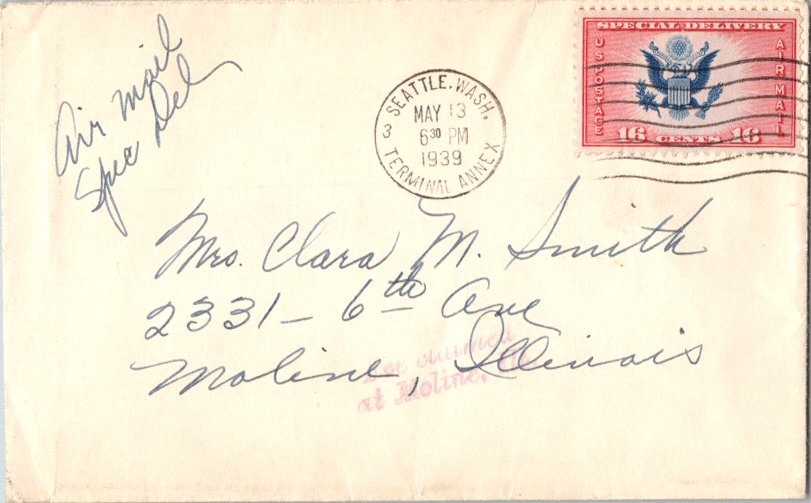 Air mail
Spec Del
SEATTLE, WASH.
3
MAY 13
6 30 PM
1939
TERMINAL ANNEX
SPECIAL DELIVERY
US POSTAGE
AIR MAIL
16 CENTS 16
Mrs. Clara M. Smith
2331 - 6th Ave
Moline, Illinois
at Moline,